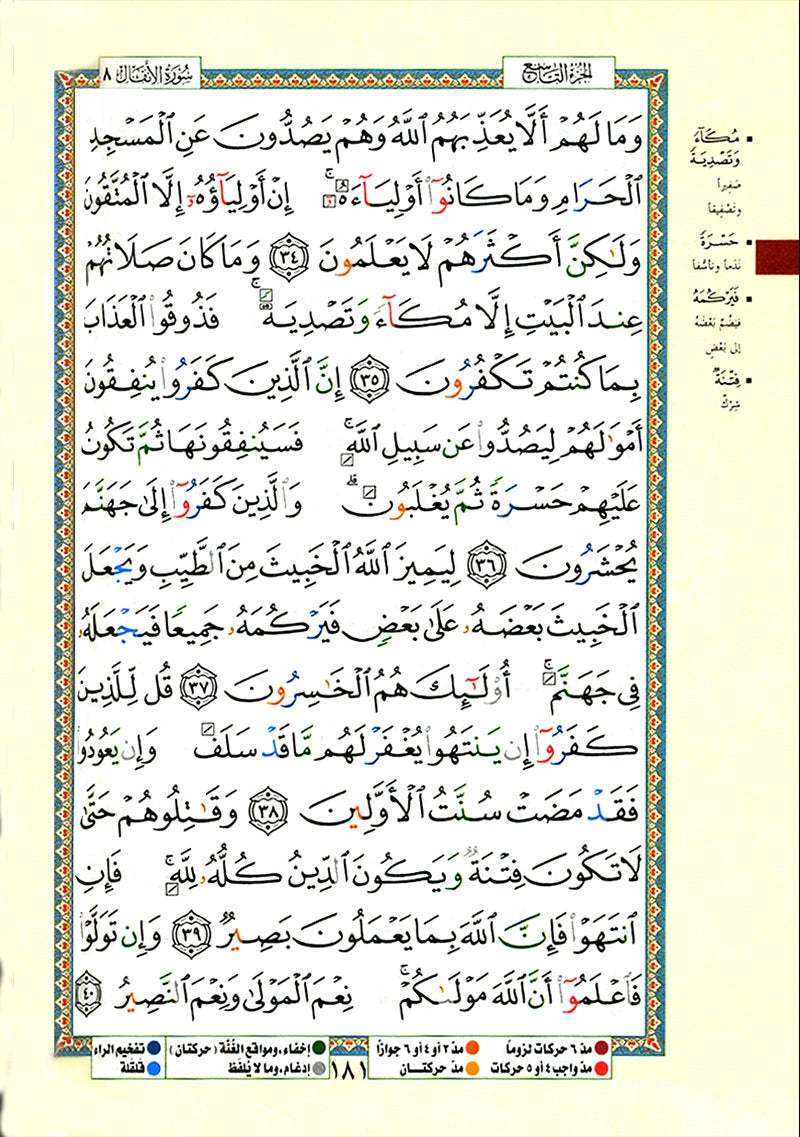 الجزء التاسع
سورة الأنفال ٨
وَمَا لَهُمْ أَلَّا يُعَذِّبَهُمُ ٱللَّهُ وَهُمْ يَصُدُّونَ عَنِ ٱلْمَسْجِدِ
ٱلْحَرَامِ وَمَا كَانُوٓا۟ أَوْلِيَآءَهُۥٓ ۚ إِنْ أَوْلِيَآؤُهُۥٓ إِلَّا ٱلْمُتَّقُونَ
وَلَٰكِنَّ أَكْثَرَهُمْ لَا يَعْلَمُونَ ٣٤ وَمَا كَانَ صَلَاتُهُمْ
عِندَ ٱلْبَيْتِ إِلَّا مُكَآءً وَتَصْدِيَةً ۚ فَذُوقُوا۟ ٱلْعَذَابَ
بِمَا كُنتُمْ تَكْفُرُونَ ٣٥ إِنَّ ٱلَّذِينَ كَفَرُوا۟ يُنفِقُونَ
أَمْوَٰلَهُمْ لِيَصُدُّوا۟ عَن سَبِيلِ ٱللَّهِ ۚ فَسَيُنفِقُونَهَا ثُمَّ تَكُونُ
عَلَيْهِمْ حَسْرَةً ثُمَّ يُغْلَبُونَ ۗ وَٱلَّذِينَ كَفَرُوٓا۟ إِلَىٰ جَهَنَّمَ
يُحْشَرُونَ ٣٦ لِيَمِيزَ ٱللَّهُ ٱلْخَبِيثَ مِنَ ٱلطَّيِّبِ وَيَجْعَلَ
ٱلْخَبِيثَ بَعْضَهُۥ عَلَىٰ بَعْضٍ فَيَرْكُمَهُۥ جَمِيعًا فَيَجْعَلَهُۥ
فِى جَهَنَّمَ ۚ أُو۟لَٰٓئِكَ هُمُ ٱلْخَٰسِرُونَ ٣٧ قُل لِّلَّذِينَ
كَفَرُوٓا۟ إِن يَنتَهُوا۟ يُغْفَرْ لَهُم مَّا قَدْ سَلَفَ وَإِن يَعُودُوا۟
فَقَدْ مَضَتْ سُنَّتُ ٱلْأَوَّلِينَ ٣٨ وَقَٰتِلُوهُمْ حَتَّىٰ
لَا تَكُونَ فِتْنَةٌ وَيَكُونَ ٱلدِّينُ كُلُّهُۥ لِلَّهِ ۚ فَإِنِ
ٱنتَهَوْا۟ فَإِنَّ ٱللَّهَ بِمَا يَعْمَلُونَ بَصِيرٌ ٣٩ وَإِن تَوَلَّوْا۟
فَٱعْلَمُوٓا۟ أَنَّ ٱللَّهَ مَوْلَىٰكُمْ ۚ نِعْمَ ٱلْمَوْلَىٰ وَنِعْمَ ٱلنَّصِيرُ ٤٠
▪ مُكَآءً
وَتَصْدِيَةً
صَفِيراً
وتَصْفِيقاً
▪ حَسْرَةً
نَدَماً وتأسُّفاً
▪ فَيَرْكُمَهُ
فيَضُمَّ بَعْضَهُ
إلى بَعْضٍ
▪ فِتْنَةٌ
شِرْكٌ
مدّ ٦ حركات لزوماً
مدّ ٢ أو ٤ أو ٦ جوازاً
إخفاء، ومواقع الغُنَّة (حركتان)
تفخيم الراء
مدّ واجب ٤ أو ٥ حركات
مدّ حركتان
إدغام، وما لا يُلفَظ
قلقلة
١٨١